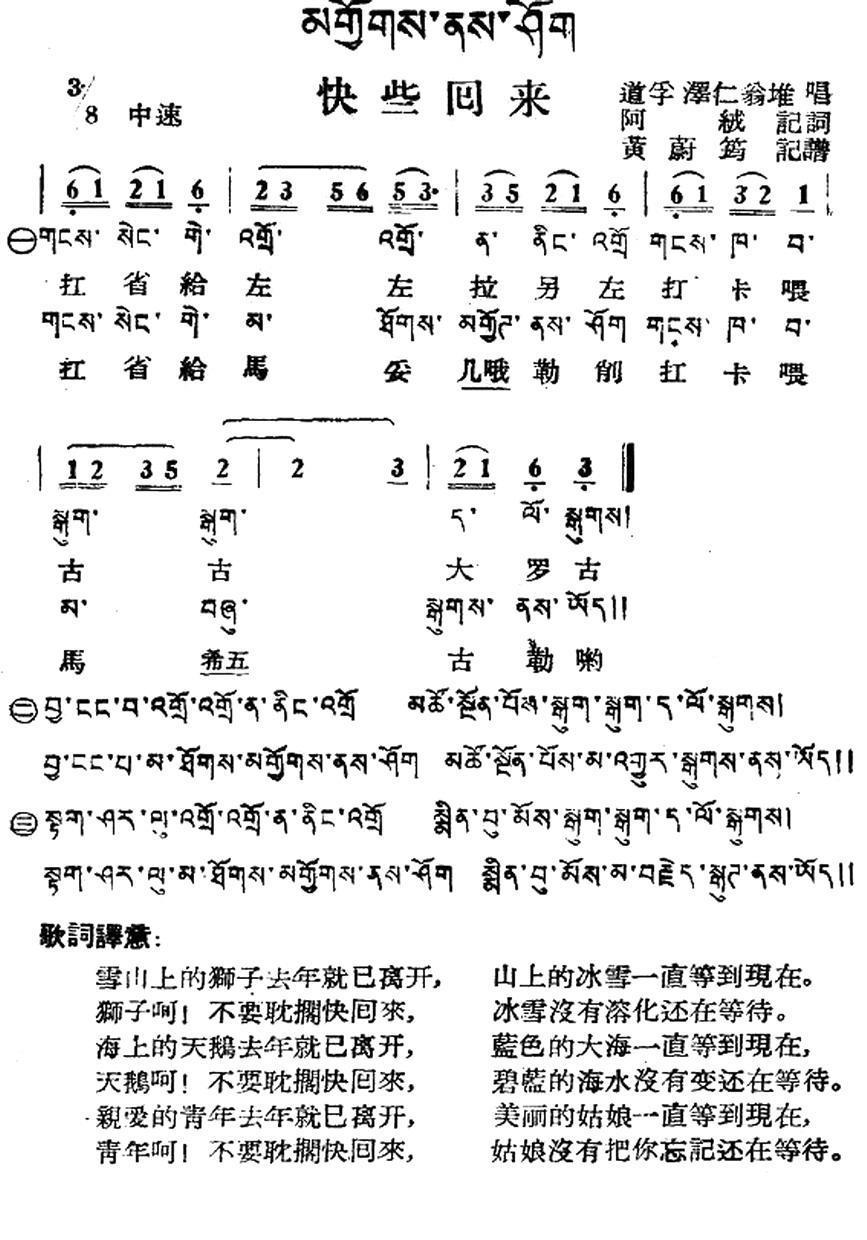 མགྱོགས་ནས་ཤོག
快些回来
3/8 中速
道孚 澤仁翁堆 唱
阿 絨 記詞
黃蔚筠 記譜
6 1 2 1 6 | 2 3 5 6 5 3· | 3 5 2 1 6 | 6 1 3 2 1 |
㊀གངས་ སེང་ གེ་ འགྲོ་ འགྲོ་ ན་ ནིང་ འགྲོ གངས་ ཁ་ བ་
扛 省 給 左 左 拉 另 左 扛 卡 喂
གངས་ སེང་ གེ་ མ་ ཐོགས་ མགྱོཊ་ ནས་ ཤོག གངས་ ཁ་ བ་
扛 省 給 馬 妥 几哦 勒 削 扛 卡 喂
| 1 2 3 5 2 | 2 3 | 2 1 6 3 ‖
སྒུག་ སྒུག་ ད་ ལོ་ སྒུགས།
古 古 大 罗 古
མ་ བཞུ་ སྒུགས་ ནས་ ཡོད།།
馬 希五 古 勒 喲
㊁བྱ་ངང་བ་འགྲོ་འགྲོ་ན་ནིང་འགྲོ མཚོ་སྔོན་པོས་སྒུག་སྒུག་ད་ལོ་སྒུགས།
བྱ་ངང་པ་མ་ཐོགས་མགྱོགས་ནས་ཤོག མཚོ་སྔོན་པོས་མ་འགྱུར་སྒུགས་ནས་ཡོད།།
㊂སྟག་ཤར་ལུ་འགྲོ་འགྲོ་ན་ནིང་འགྲོ སྨིན་བུ་མོས་སྒུག་སྒུག་ད་ལོ་སྒུགས།
སྟག་ཤར་ལུ་མ་ཐོགས་མགྱོགས་ནས་ཤོག སྨིན་བུ་མོས་མ་བརྗེད་སྒུཊ་ནས་ཡོད།།
歌詞譯意:
雪山上的獅子去年就已离开, 山上的冰雪一直等到現在。
獅子呵! 不要耽擱快回來, 冰雪沒有溶化还在等待。
海上的天鵝去年就已离开, 藍色的大海一直等到現在,
天鵝呵! 不要耽擱快回來, 碧藍的海水沒有变还在等待。
親愛的青年去年就已离开, 美丽的姑娘一直等到現在,
青年呵! 不要耽擱快回來, 姑娘沒有把你忘記还在等待。